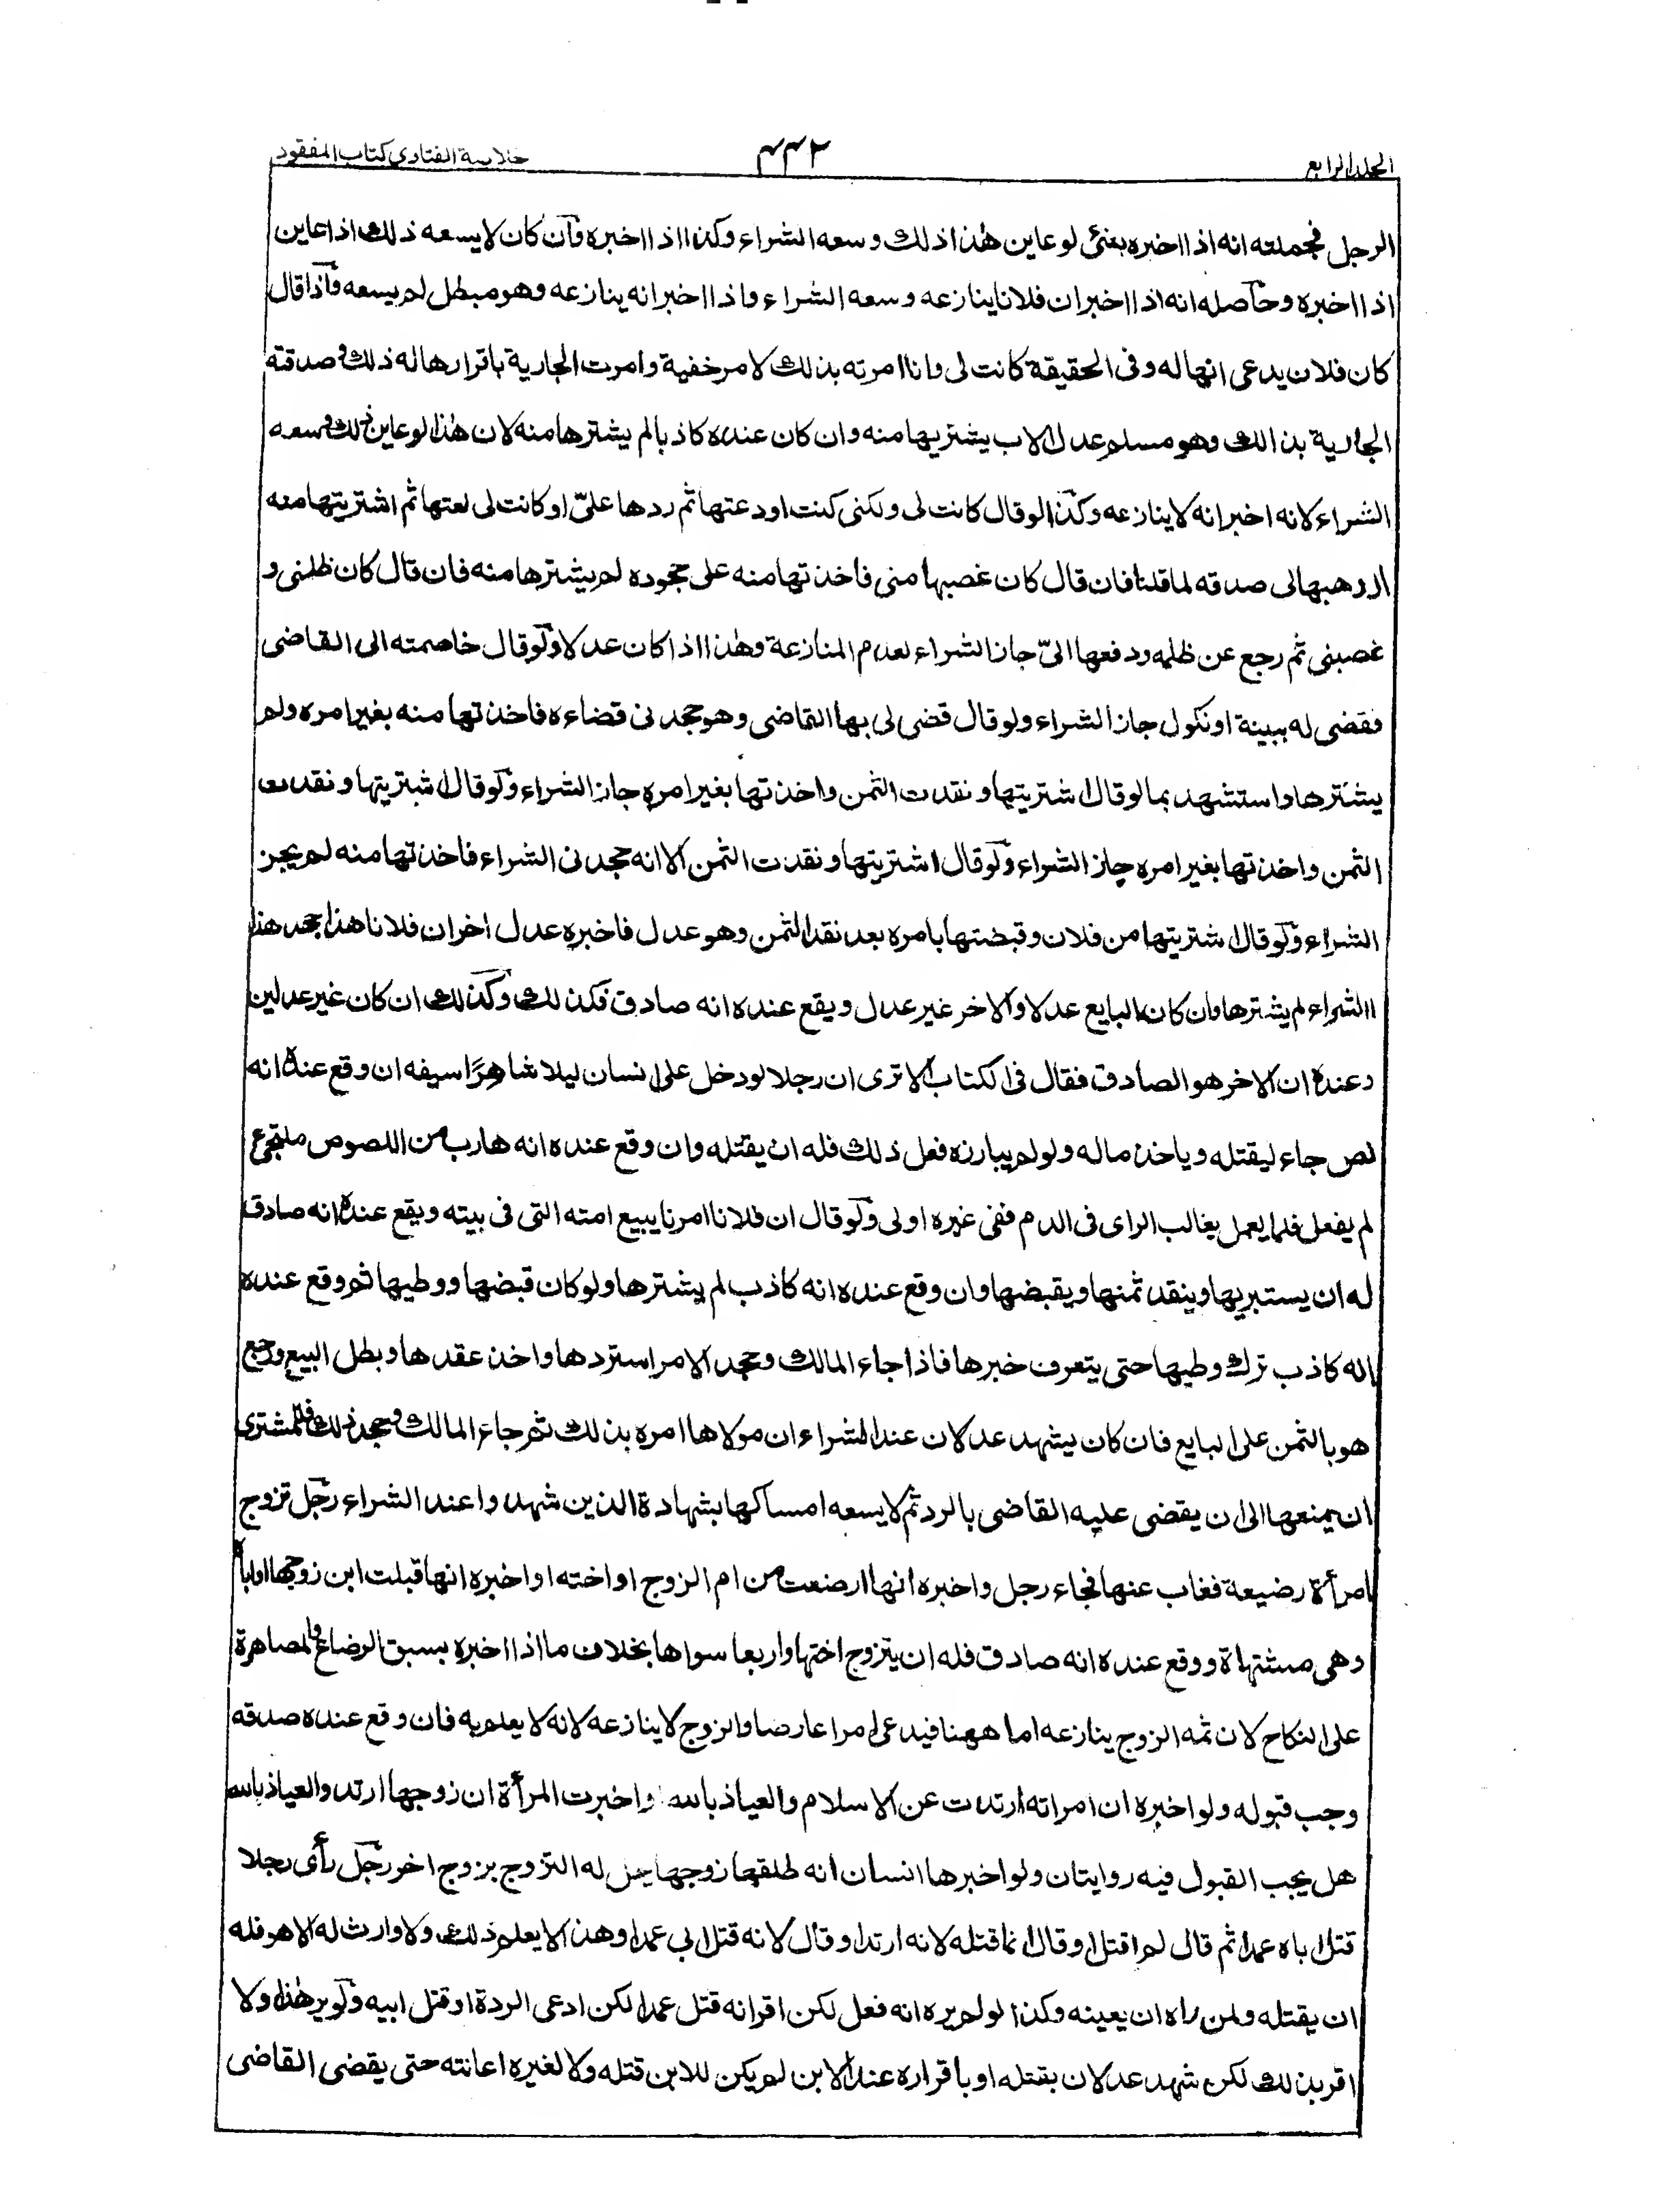 الجلد الرابع ٣٣٢ خلاصة الفتاوى كتاب المفقود
الرجل فجملته انه اذا اخبره بشئ لو عاين هذا ذلك وسعه الشراء وكذا اذا اخبره وان كان لا يسعه ذلك اذا عاين
اذا اخبره وحاصله انه اذا اخبر ان فلانا ينازعه وسعه الشراء واذا اخبر انه ينازعه وهو مبطل لم يسعه فاذا قال
كان فلان يدعى انها له وفى الحقيقة كانت لى وانا امرته بذلك لامر خفية وامرت الجارية باقرارها له ذلك وصدقته
الجارية بذالك وهو مسلم عدل لاب يشتريها منه وان كان عنده كاذبا لم يشترها منه لان هذا لو عاين ذلك وسعه
الشراء لانه اخبر انه لا ينازعه وكذا لو قال كانت لى ولكنى كنت اودعتها ثم ردها علىّ او كانت لى بعتها ثم اشتريتها منه
او وهبها لى صدقه لما قلنا فان قال كان غصبها منى فاخذتها منه على جحوده لم يشترها منه فان قال كان ظلمنى و
غصبنى ثم رجع عن ظلمه ودفعها الىّ جاز الشراء لعدم المنازعة وهذا اذا كان عدلا ولو قال خاصمته الى القاضى
فقضى له ببينة او نكول جاز الشراء ولو قال قضى لى بها القاضى وهو جحد نى قضاءه فاخذتها منه بغير امره ولم
يشترها واستشهد بما لو قال اشتريتها ونقدت الثمن واخذتها بغير امره جاز الشراء ولو قال اشتريتها ونقدت
الثمن واخذتها بغير امره جاز الشراء ولو قال اشتريتها ونقدت الثمن الا انه جحد نى الشراء فاخذتها منه لم يجز
الشراء ولو قال اشتريتها من فلان وقبضتها بامره بعد نقد الثمن وهو عدل فاخبره عدل اخر ان فلانا هذا جحد هذا
االشراء لم يشترها وان كان البايع عدلا والاخر غير عدل ويقع عنده انه صادق فكذلك وكذلك ان كان غير عدلين
وعنده ان الاخر هو الصادق فقال فى الكتاب الا ترى ان رجلا لو دخل على انسان ليلا شاهرًا سيفه ان وقع عنده انه
لص جاء ليقتله وياخذ ماله ولو لم يبارزه فعل ذلك فله ان يقتله وان وقع عنده انه هارب من اللصوص ملتجئ
لم يفعل فلما يعمل بغالب الراى فى الدم ففى غيره اولى ولو قال ان فلانا امرنا يبيع امته التى فى بيته ويقع عنده انه صادق
له ان يستبريها وينقد ثمنها ويقبضها وان وقع عنده انه كاذب لم يشترها ولو كان قبضها ووطيها ثم وقع عنده
انه كاذب ترك وطيها حتى يتعرف خبرها فاذا جاء المالك وجحد الامر استردها واخذ عقدها وبطل البيع ورجع
هو بالثمن على البايع فان كان يشهد عدلان عند الشراء ان مولاها امره بذلك ثم جاء المالك وجحد ذلك فللمشترى
ان يمنعها الى ان يقضى عليه القاضى بالرد ثم لا يسعه امساكها بشهادة الذين شهدوا عند الشراء رجل تزوج
امرأة رضيعة فغاب عنها فجاء رجل واخبره انها ارضعت من ام الزوج او اخته او اخبره انها قبلت ابن زوجها او اباه
وهى مشتهاة ووقع عنده انه صادق فله ان يتزوج اختها واربعا سواها بخلاف ما اذا اخبره بسبق الرضاع والمصاهرة
على النكاح لان ثمه الزوج ينازعه اما ههنا فيدعى امرا عارضا والزوج لا ينازعه لانه لا يعلم به فان وقع عنده صدقه
وجب قبوله ولو اخبره ان امراته ارتدت عن الاسلام والعياذ بالله واخبرت المرأة ان زوجها ارتد والعياذ بالله
هل يجب القبول فيه روايتان ولو اخبرها انسان انه طلقها زوجها حل له التزوج بزوج اخر رجل رأى رجلا
قتل اباه عمدا ثم قال لم اقتل او قال انما قتله لانه ارتد او قال لانه قتل ابى عمدا وهذا لا يعلم ذلك ولا وارث له الا هو فله
ان يقتله ولمن راه ان يعينه وكذا لو لم يره انه فعل لكن اقر انه قتل عمدا لكن ادعى الردة او قتل ابيه ولو ير هذا ولا
اقر بذلك لكن شهد عدلان بقتله او باقراره عند الابن لم يكن للابن قتله ولا لغيره اعانته حتى يقضى القاضى